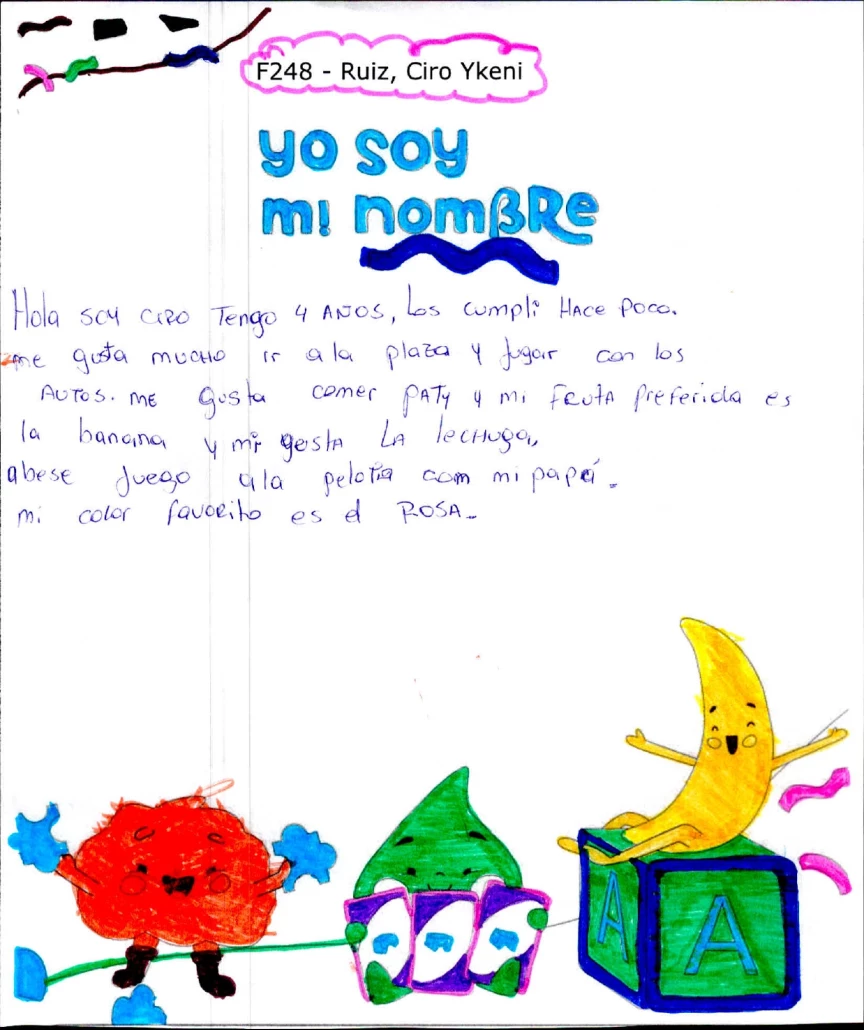 F248 - Ruiz, Ciro Ykeni
yo soy
mi nomBRe
Hola soy ciRo Tengo 4 AÑOS, Los cumpli HAce Poco.
me gusta mucHo ir a la plaza y jugar con los
AUTOS. ME gusta comer PATy y mi FRUTA Preferida es
la banana y mi gusta LA lecHuga,
abese juego a la pelota com mi papá.
mi color favoRito es el ROSA.
A A